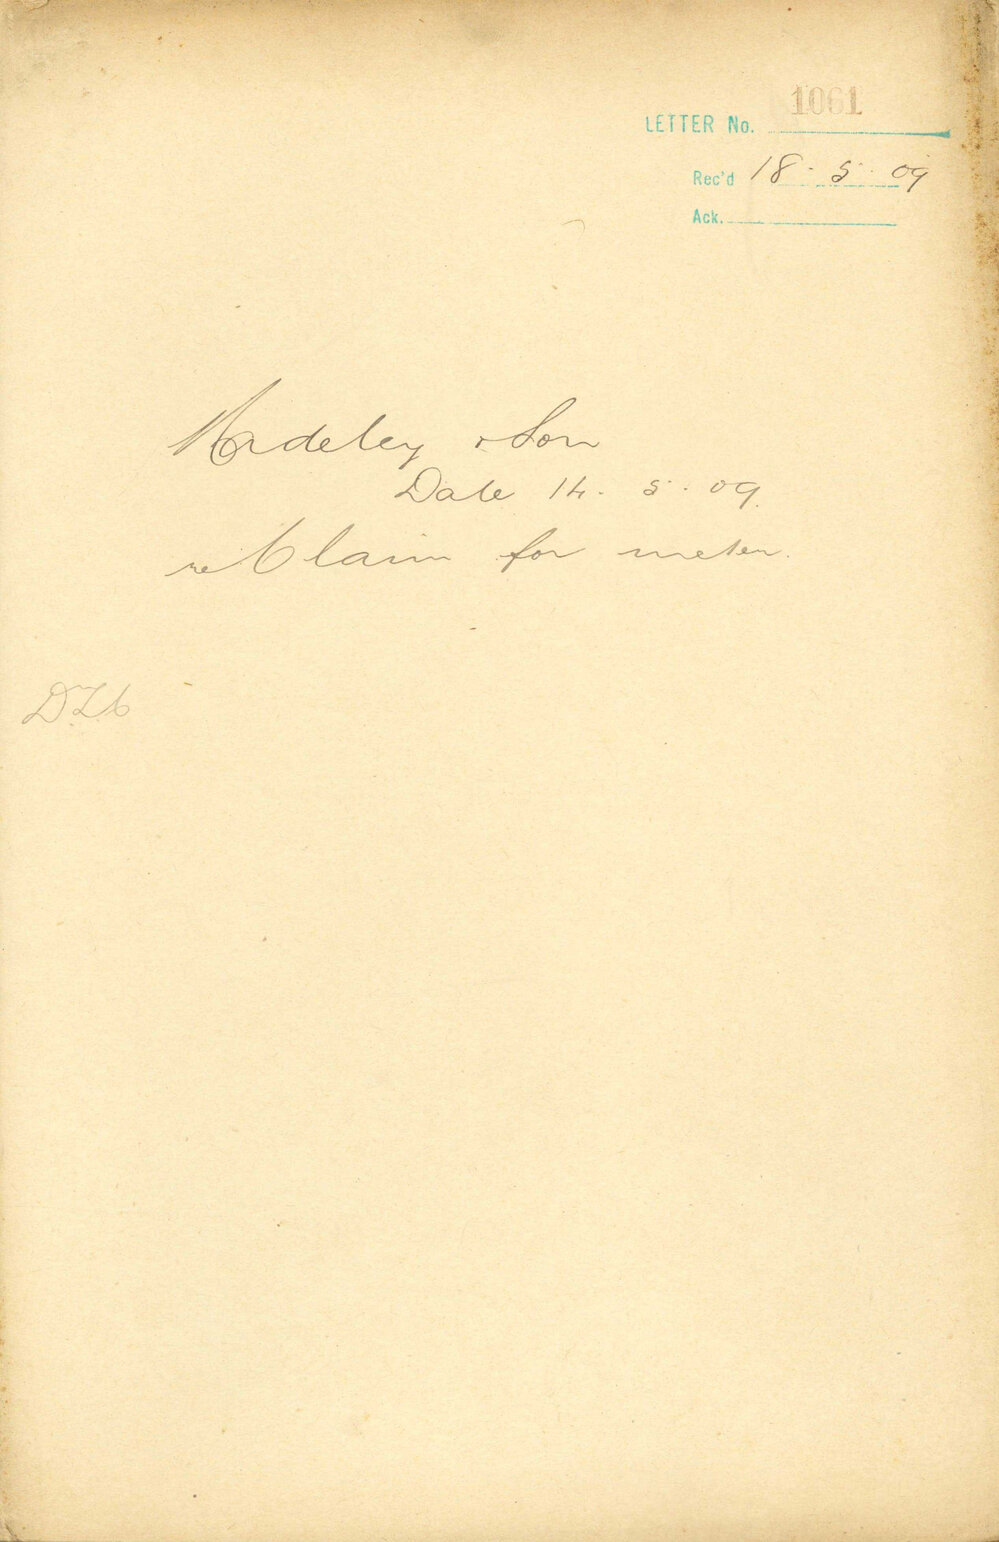 LETTER No. 1061
Rec'd 18 · 5 · 09
Ack.
& Son
Date 14 · 5 · 09.
re Claim for meter.